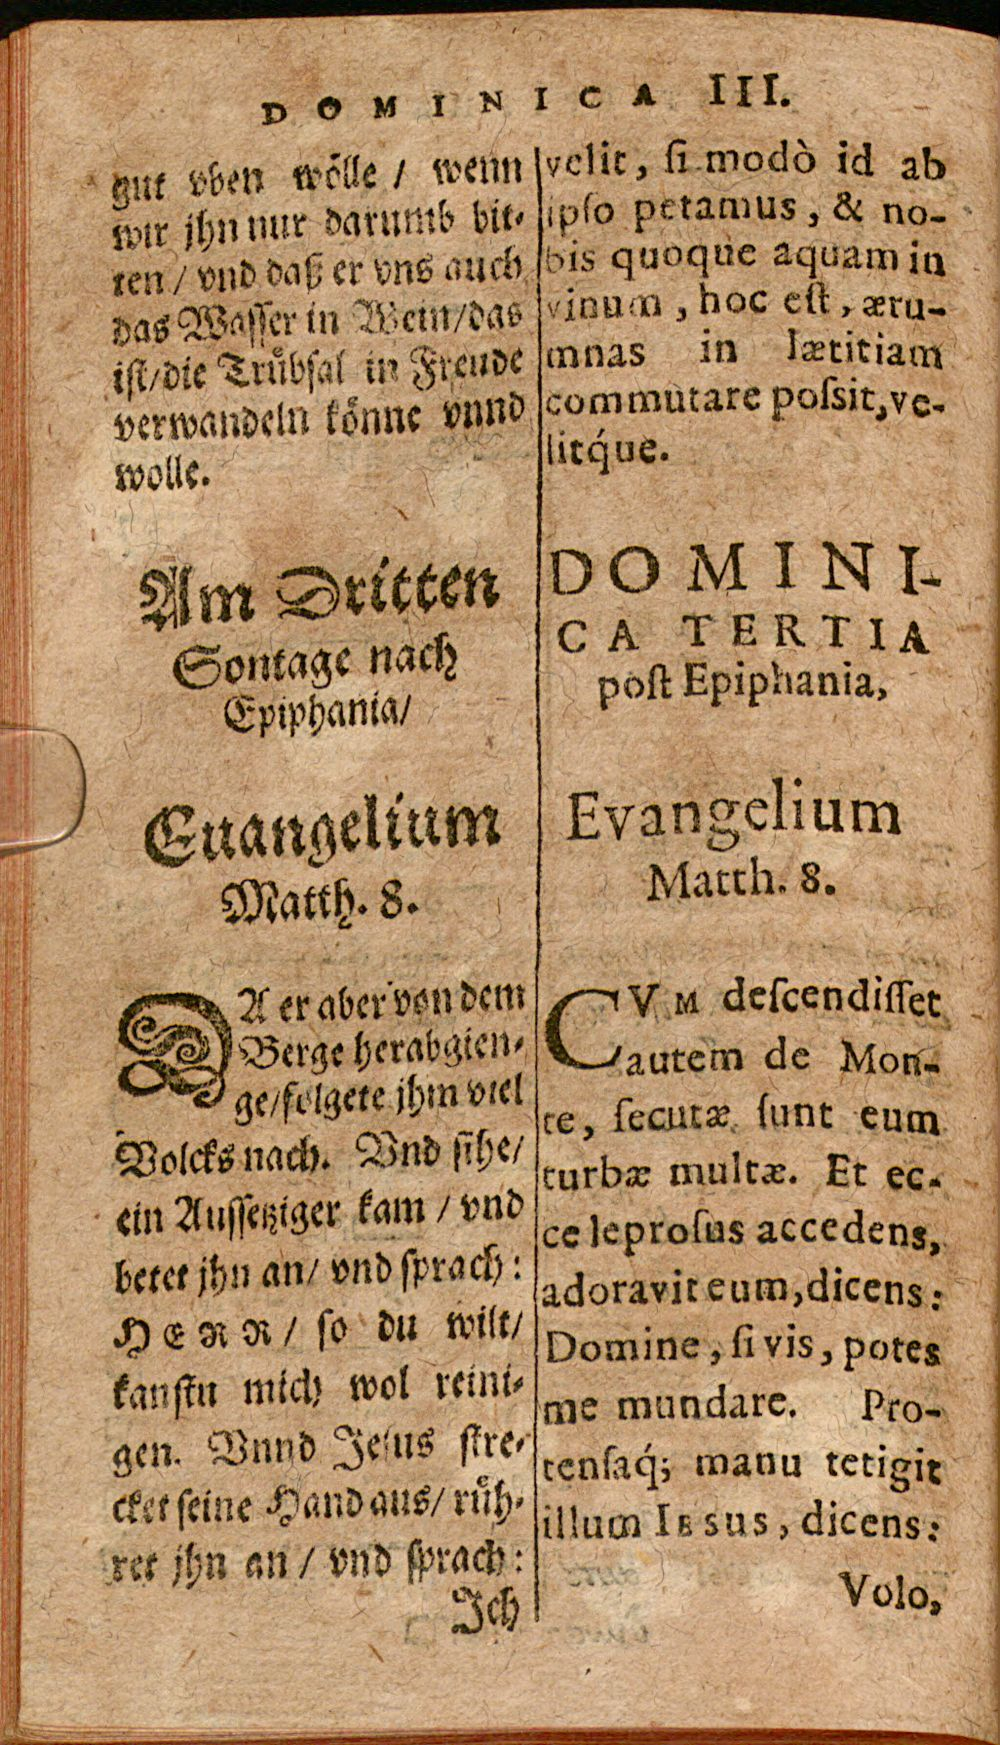 DOMINICA III.
gut vben wölle / wenn
wir jhn nur darumb bit⸗
ten / vnd daß er vns auch
das Wasser in Wein/das
ist/die Trübsal in Freude
verwandeln könne vnnd
wolle.
Am Dritten
Sontage nach
Epiphania/
Euangelium
Matth. 8.
DA er aber von dem
Berge herabgien⸗
ge/folgete jhm viel
Volcks nach. Vnd sihe/
ein Aussetziger kam / vnd
betet jhn an/ vnd sprach:
HERR/ so du wilt/
kanstu mich wol reini⸗
gen. Vnnd Jesus stre⸗
cket seine Hand aus/ rüh⸗
ret jhn an / vnd sprach:
Jch
velit, ſi modò id ab
ipſo petamus, & no-
bis quoque aquam in
vinum, hoc eſt, æru-
mnas in lætitiam
commutare poſsit, ve-
litq́ue.
DOMINI-
CA TERTIA
poſt Epiphania,
Evangelium
Matth. 8.
CVM deſcendiſſet
autem de Mon-
te, ſecutæ ſunt eum
turbæ multæ. Et ec-
ce leproſus accedens,
adoravit eum, dicens:
Domine, ſi vis, potes
me mundare. Pro-
tenſaq́; manu tetigit
illum IESUS, dicens:
Volo,